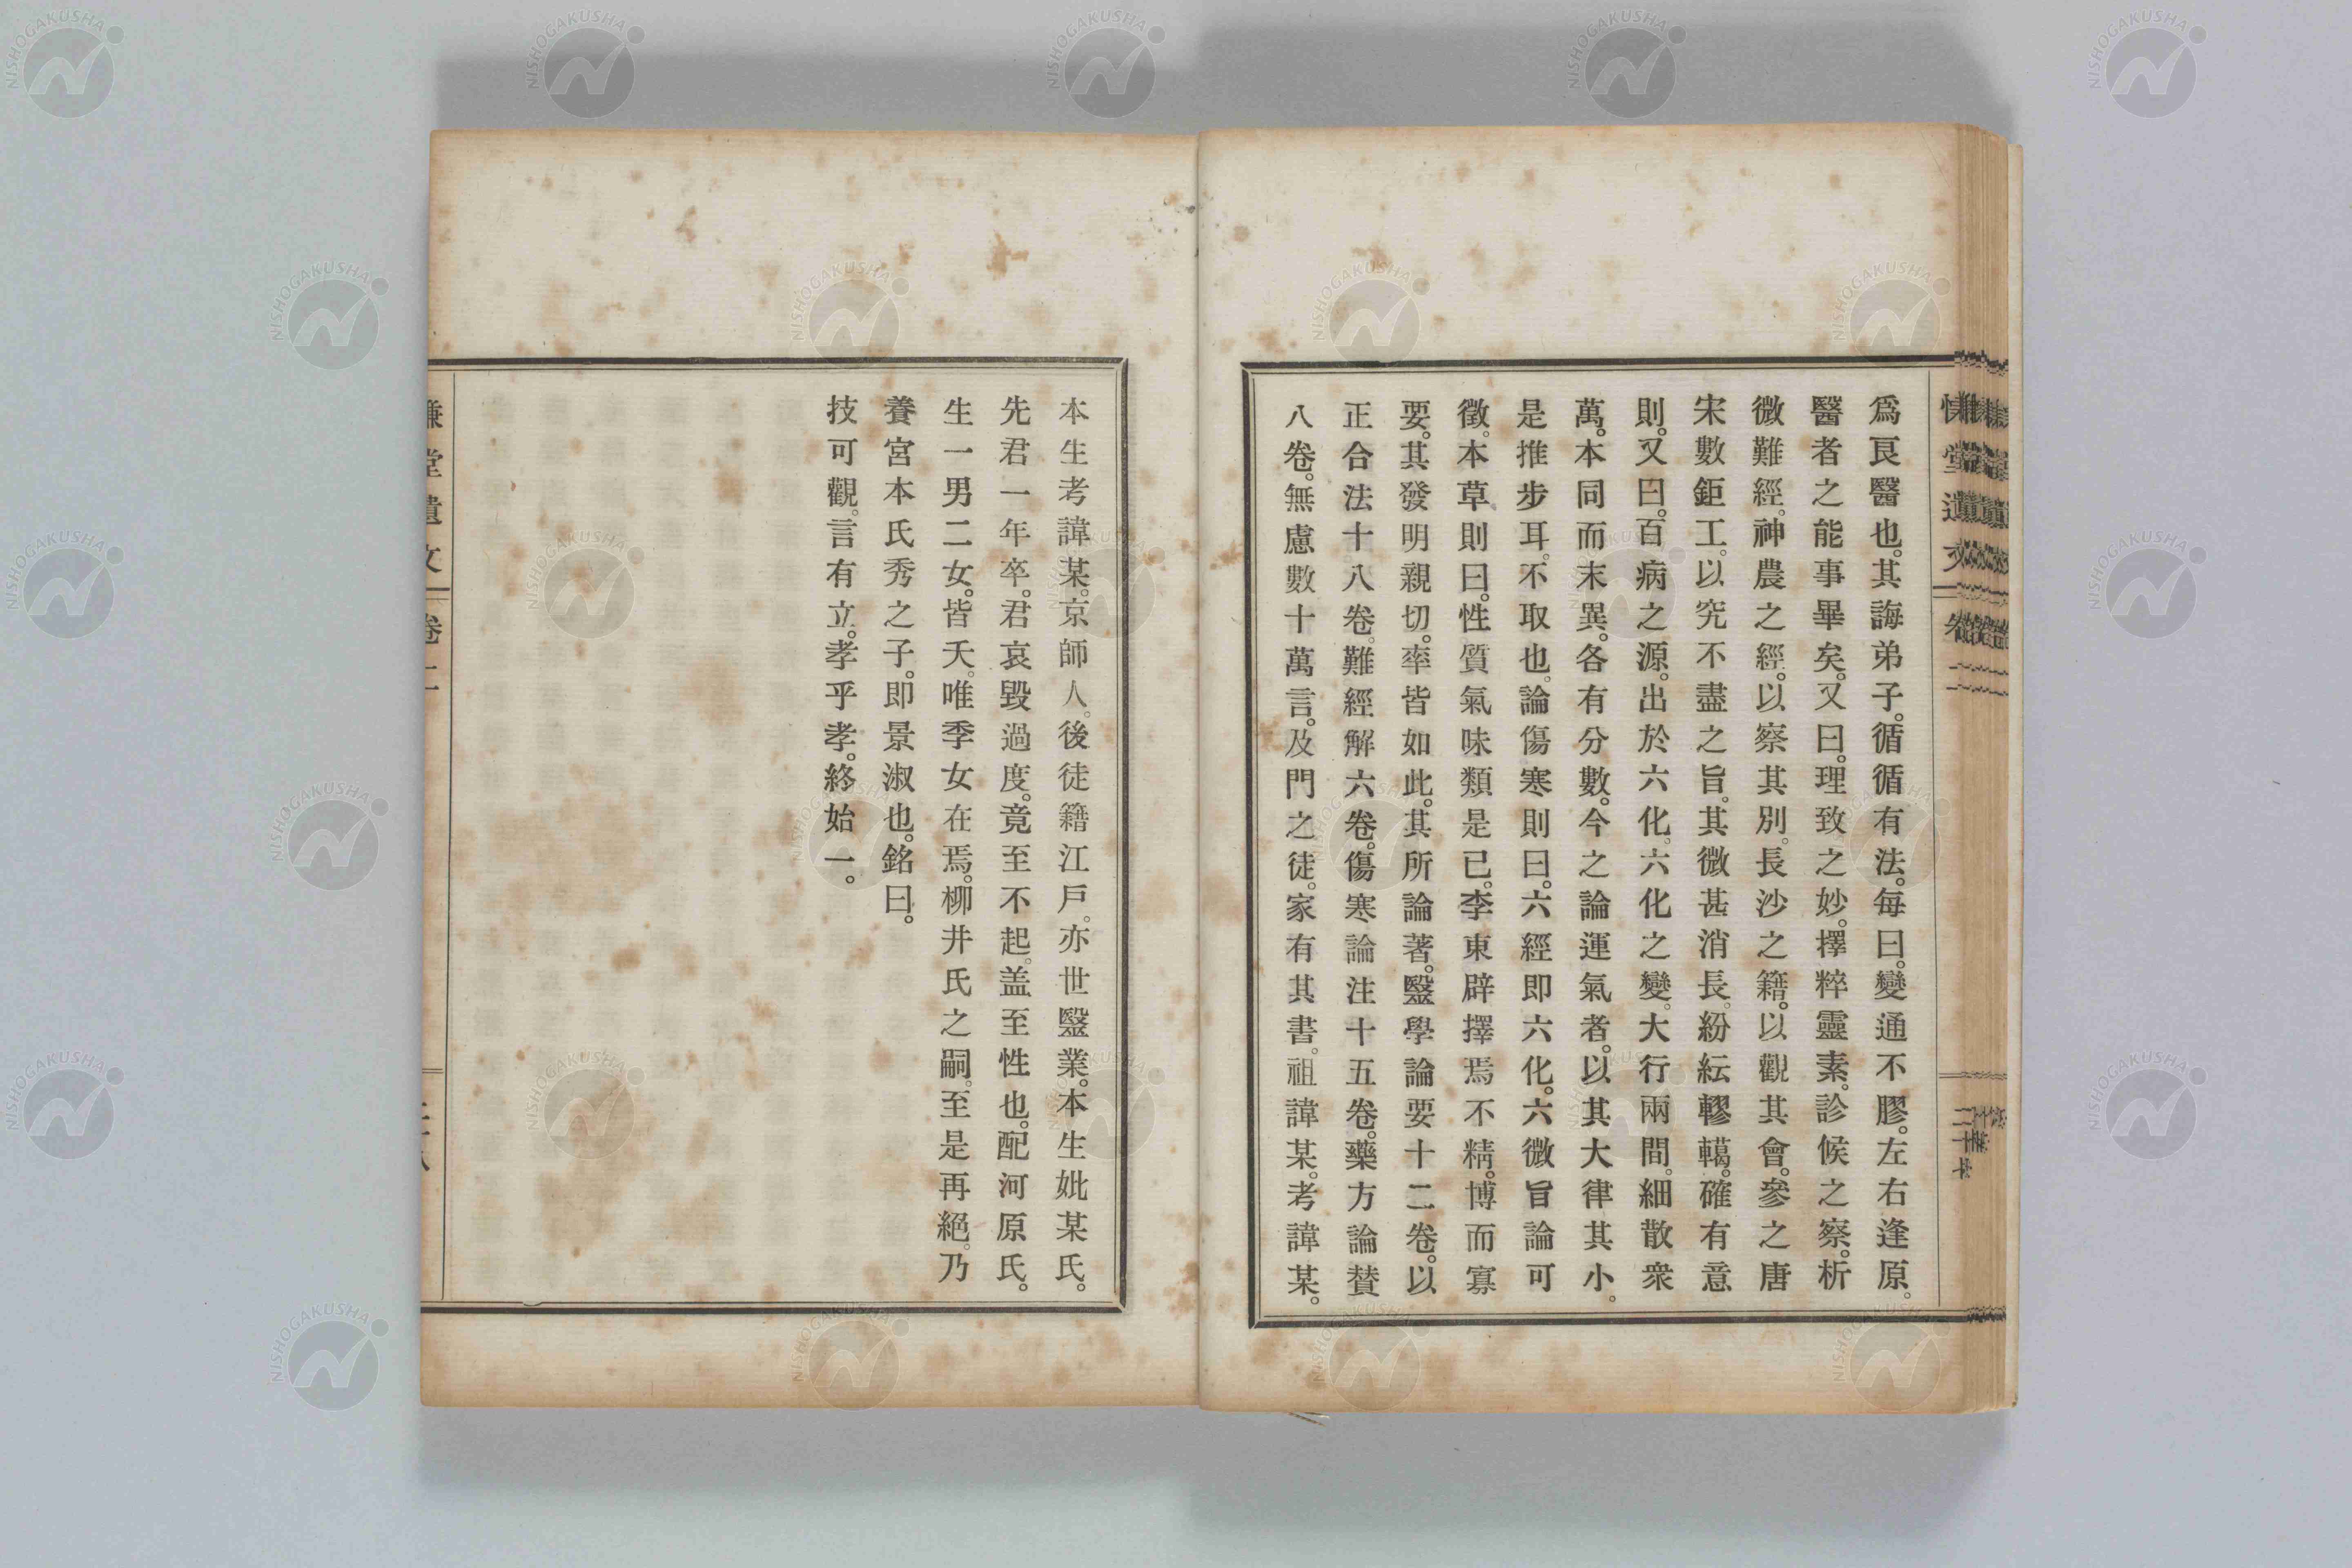 爲良醫也。其誨弟子。循循有法。每曰。變通不膠。左右逢原。
醫者之能事畢矣。又曰。理致之妙。擇粹靈素。診候之察。析
微難經。神農之經。以察其別。長沙之籍。以觀其會。參之唐
宋數鉅工。以究不盡之旨。其微甚消長。紛紜轇轕。確有意
則。又曰。百病之源。出於六化。六化之變。大行兩間。細散衆
萬。本同而末異。各有分數。今之論運氣者。以其大律其小。
是推步耳。不取也。論傷寒則曰。六經即六化。六微旨論可
徵。本草則曰。性質氣味類是已。李東辟擇焉不精。博而寡
要。其發明親切。率皆如此。其所論著。毉學論要十二卷。以
正合法十八卷。難經解六卷。傷寒論注十五卷。藥方論贊
八卷。無慮數十萬言。及門之徒。家有其書。祖諱某。考諱某。
本生考諱某。京師人。後徒籍江戸。亦世毉業。本生妣某氏。
先君一年卒。君哀毀過度。竟至不起。盖至性也。配河原氏。
生一男二女。皆夭。唯季女在焉。柳井氏之嗣。至是再絕。乃
養宮本氏秀之子。即景淑也。銘曰。
技可觀。言有立。孝乎孝。終始一。
慊堂遺文 卷二
NISHOGAKUSHA